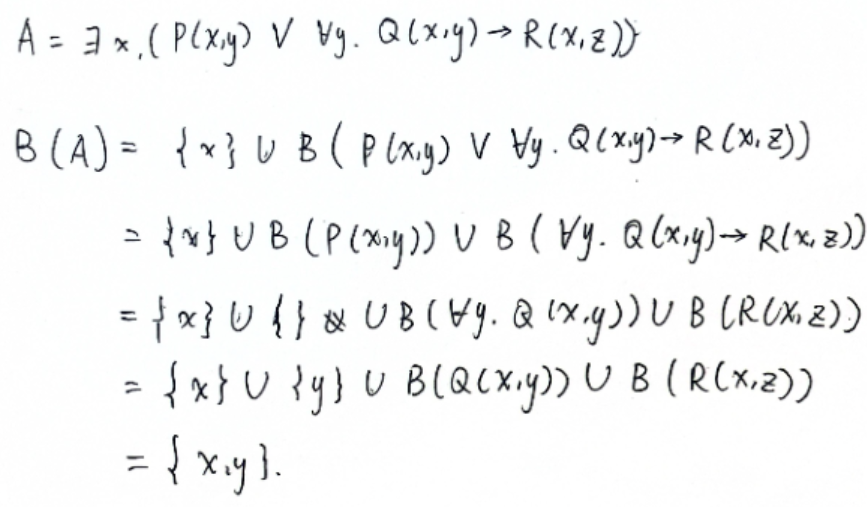 A = ∃x.(P(x,y) ∨ ∀y. Q(x,y) → R(x,z))
B(A) = {x} ∪ B(P(x,y) ∨ ∀y. Q(x,y) → R(x,z))
= {x} ∪ B(P(x,y)) ∪ B(∀y. Q(x,y) → R(x,z))
= {x} ∪ {} ∪ B(∀y. Q(x,y)) ∪ B(R(x,z))
= {x} ∪ {y} ∪ B(Q(x,y)) ∪ B(R(x,z))
= {x,y}.